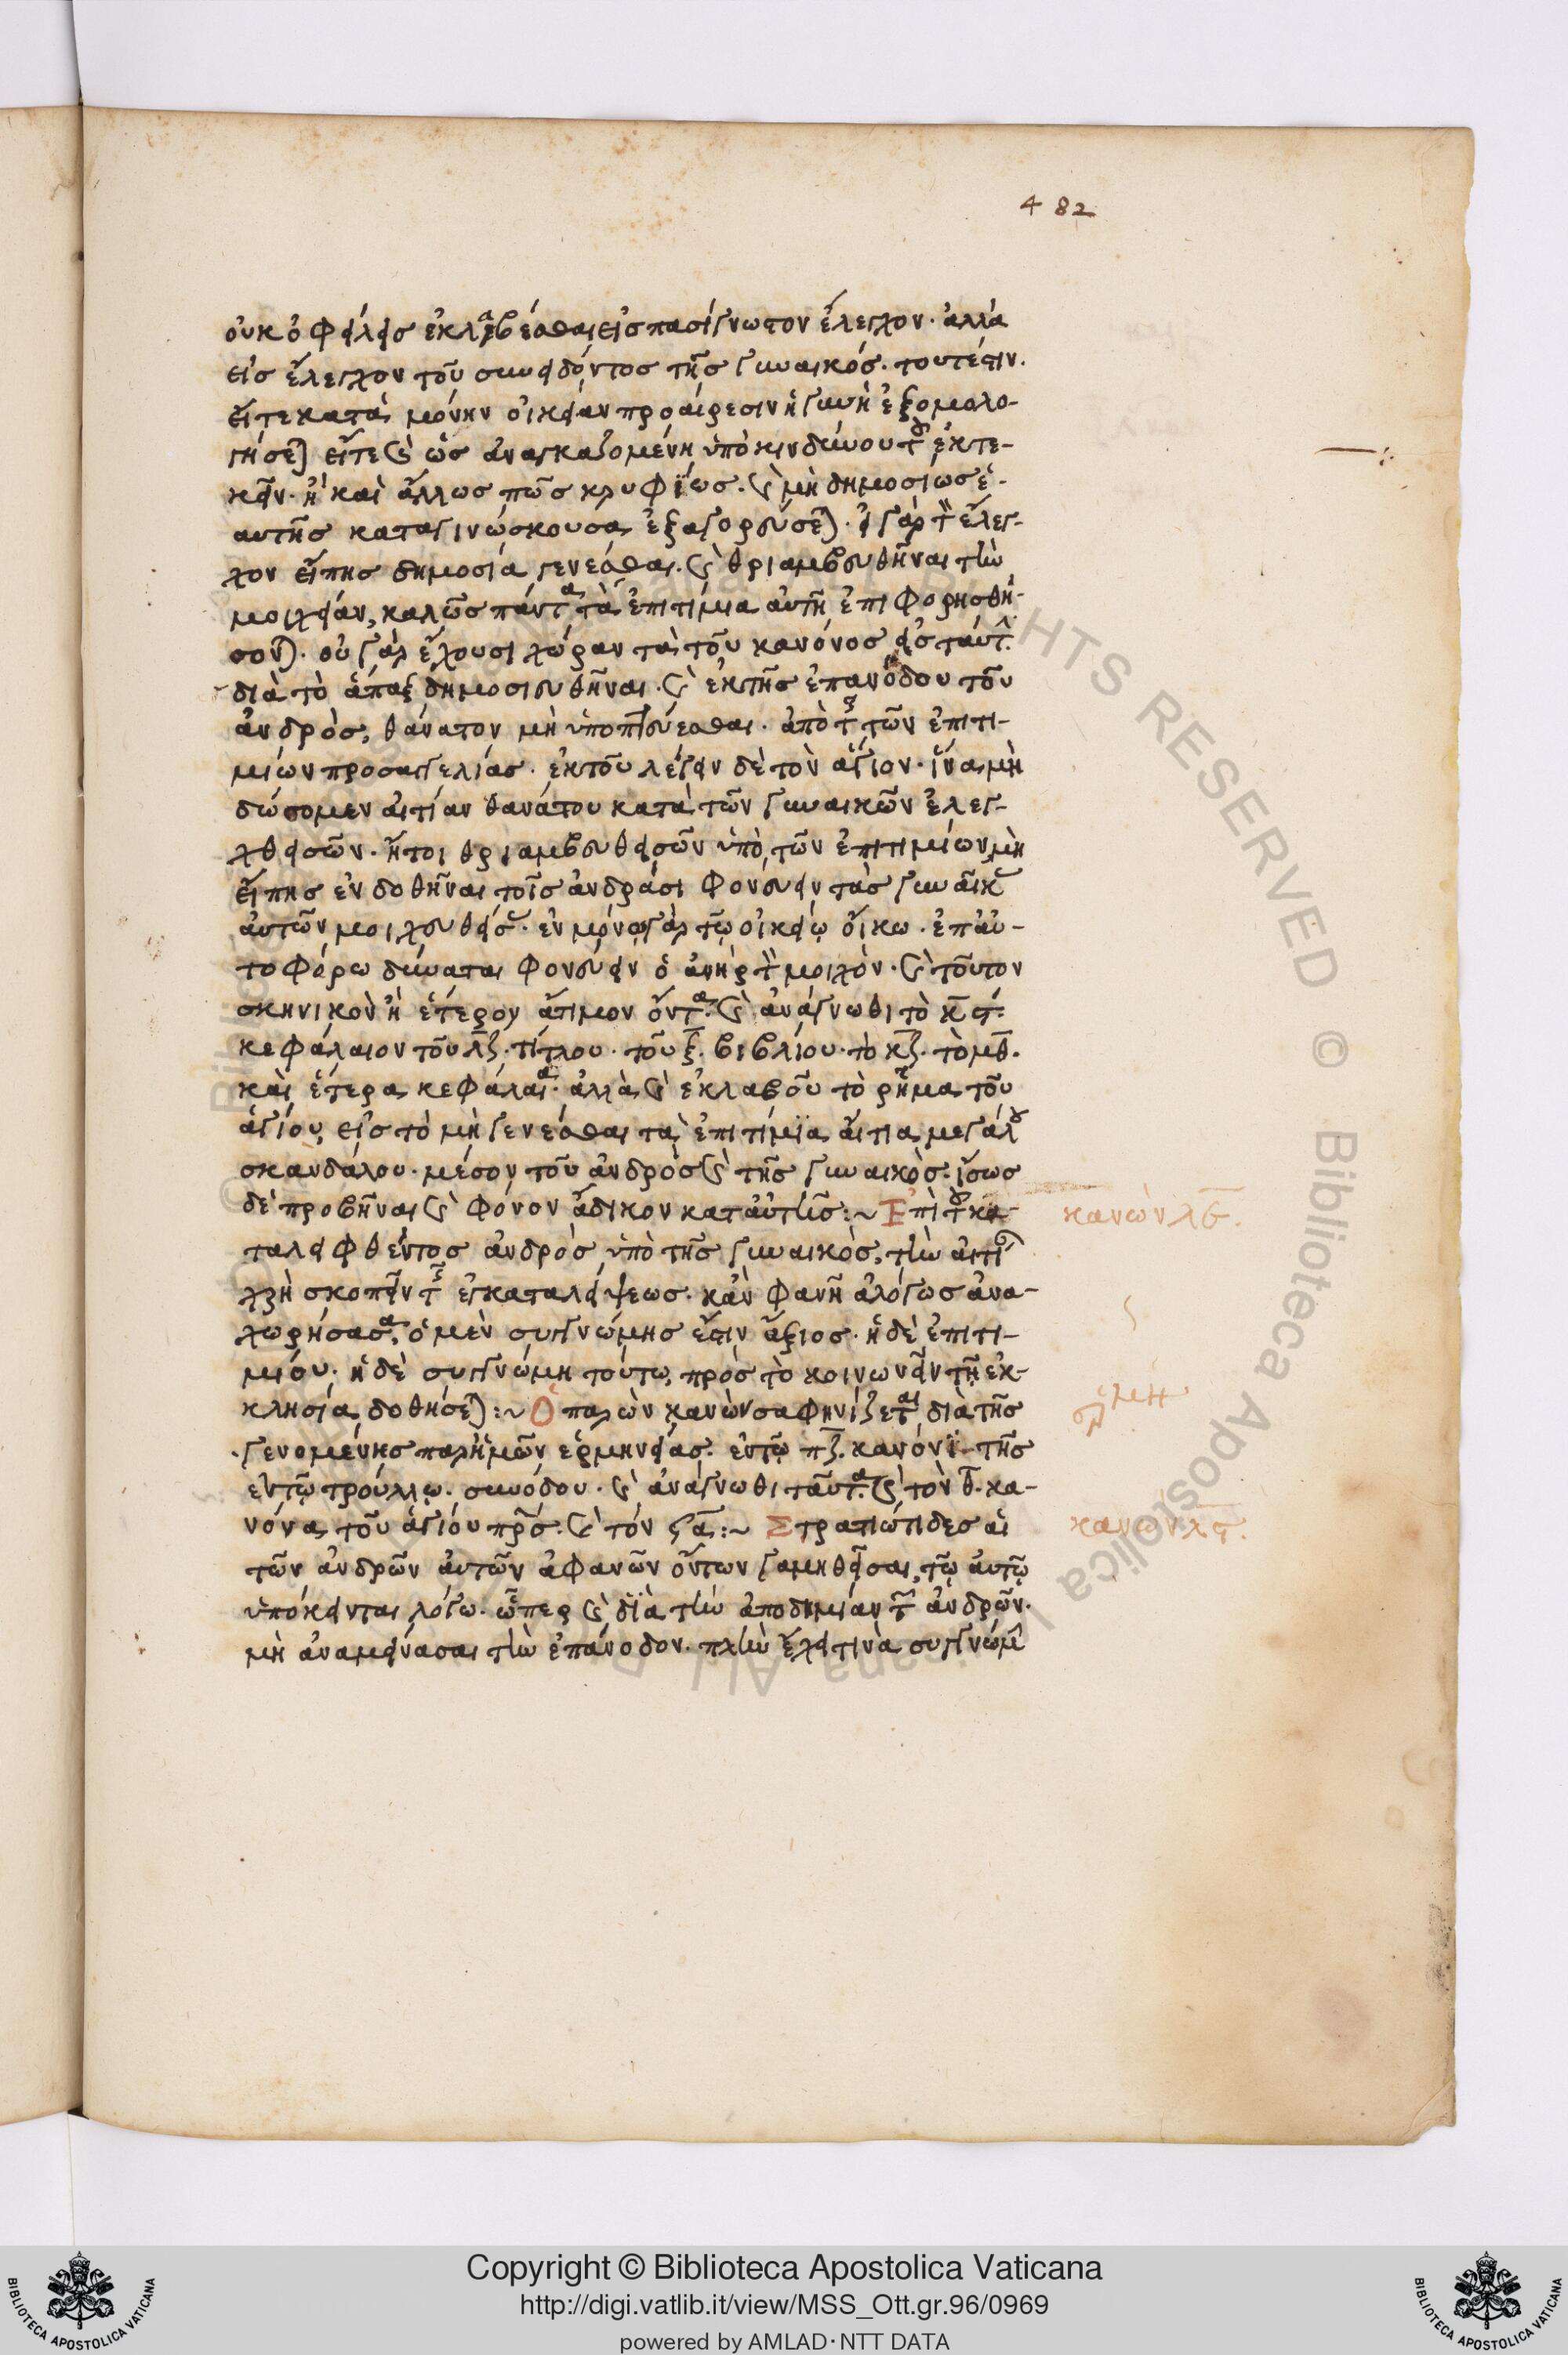 482
οὐκ ὀφείλεις ἐκλαβέσθαι εἰς πασίγνωστον ἔλεγχον· ἀλλὰ
εἰς ἔλεγχον τοῦ συνειδόντος τῆς γυναικός. τουτέστιν.
εἴτε κατὰ μόνην οἰκείαν προαίρεσιν ἡ γυνὴ ἐξομολο-
γήσεται εἴτε καὶ ὡς ἀναγκαζομένη ὑπὸ κινδύνου τοῦ ἐκ τε-
κεῖν· ἢ καὶ ἄλλως πῶς κρυφίως. καὶ μὴ δημοσίως ἑ-
αυτῆς καταγινώσκουσα ἐξαγορεύσεται. εἰ γὰρ τὸν ἔλεγ-
χον εἴπῃς δημοσία γενέσθαι. καὶ θριαμβευθῆναι τὴν
μοιχείαν, καλῶς πάντα τὰ ἐπιτίμια αὐτῇ ἐπιφορησθή-
σονται. οὐ γὰρ ἔχουσι χώραν τὰ τοῦ κανόνος εἰς ταύτην
διὰ τὸ ἅπαξ δημοσιευθῆναι. καὶ ἐκ τῆς ἐπανόδου τοῦ
ἀνδρὸς, θάνατον μὴ ὑποπτεύεσθαι. ἀπὸ τῆς τῶν ἐπιτι-
μίων προσαγγελίας. ἐκ τοῦ λέγειν δὲ τὸν ἅγιον· ἵνα μὴ
δώσομεν αἰτίαν θανάτου κατὰ τῶν γυναικῶν ἐλεγ-
χθεισῶν. ἤτοι θριαμβευθεισῶν ὑπὸ τῶν ἐπιτιμίων, μὴ
εἴπῃς ἐνδοθῆναι τοῖς ἀνδράσι φονεύειν τὰς γυναῖκας
αὐτῶν μοιχευθείσας. ἐν μόνῳ γὰρ τῷ οἰκείῳ οἴκω. ἐπ αὐ-
τοφόρω δύναται φονεύειν ὁ ἀνὴρ τὸν μοιχόν. καὶ τοῦτον
σκηνικὸν ἢ ἑτέρου ἄτιμον ὄντα. καὶ ἀνάγνωθι τὸ κϛ.
κεφάλαιον τοῦ λζ. τίτλου. τοῦ ξ. βιβλίου. τὸ κζ. τὸ μθ.
καὶ ἕτερα κεφάλαια. ἀλλὰ καὶ ἐκλαβοῦ τὸ ρῆμα τοῦ
ἁγίου, εἰς τὸ μὴ γενέσθαι τὰ ἐπιτίμια αἴτια μεγάλου
σκανδάλου. μέσον τοῦ ἀνδρὸς καὶ τῆς γυναικός. ἴσως
δὲ προβῆναι καὶ φόνον ἄδικον κατ αὐτῆς :~ Ἐπὶ τοῦ κα-
κανὼν λε.
ταλειφθέντος ἀνδρὸς ὑπὸ τῆς γυναικὸς, τὴν αἰτίαν
χρὴ σκοπεῖν τῆς ἐγκαταλείψεως. κἂν φανῇ ἀλόγως ἀνα-
χωρήσασα, ὁ μὲν συγγνώμης ἐστιν ἄξιος. ἡ δὲ ἐπιτι-
μίου. ἡ δὲ συγγνώμη τούτω, πρὸς τὸ κοινωνεῖν τῇ ἐκ-
κλησία δοθήσεται :~ Ὁ παρὼν κανὼν σαφηνίζεται διὰ τῆς
γενομένης παρ ἡμῶν ἑρμηνείας. ἐν τῷ πζ. κανόνι τῆς
ἐν τῷ τρούλλῳ. συνόδου. καὶ ἀνάγνωθι ταῦτα. καὶ τὸν θ. κα-
νόνα τοῦ ἁγίου πρς. καὶ τόν :~ Στρατιώτιδες αἱ
κανὼν λϛ.
τῶν ἀνδρῶν αὐτῶν ἀφανῶν ὄντων γαμηθεῖσαι, τῷ αὐτῷ
ὑπόκεινται λόγω. ὧπερ καὶ διὰ τὴν ἀποδημίαν τῶν ἀνδρῶν.
μὴ ἀναμείνασαι τὴν ἐπάνοδον. πλὴν ἔχει τινὰ συγγνώμην
Copyright © Biblioteca Apostolica Vaticana
http://digi.vatlib.it/view/MSS_Ott.gr.96/0969
powered by AMLAD·NTT DATA